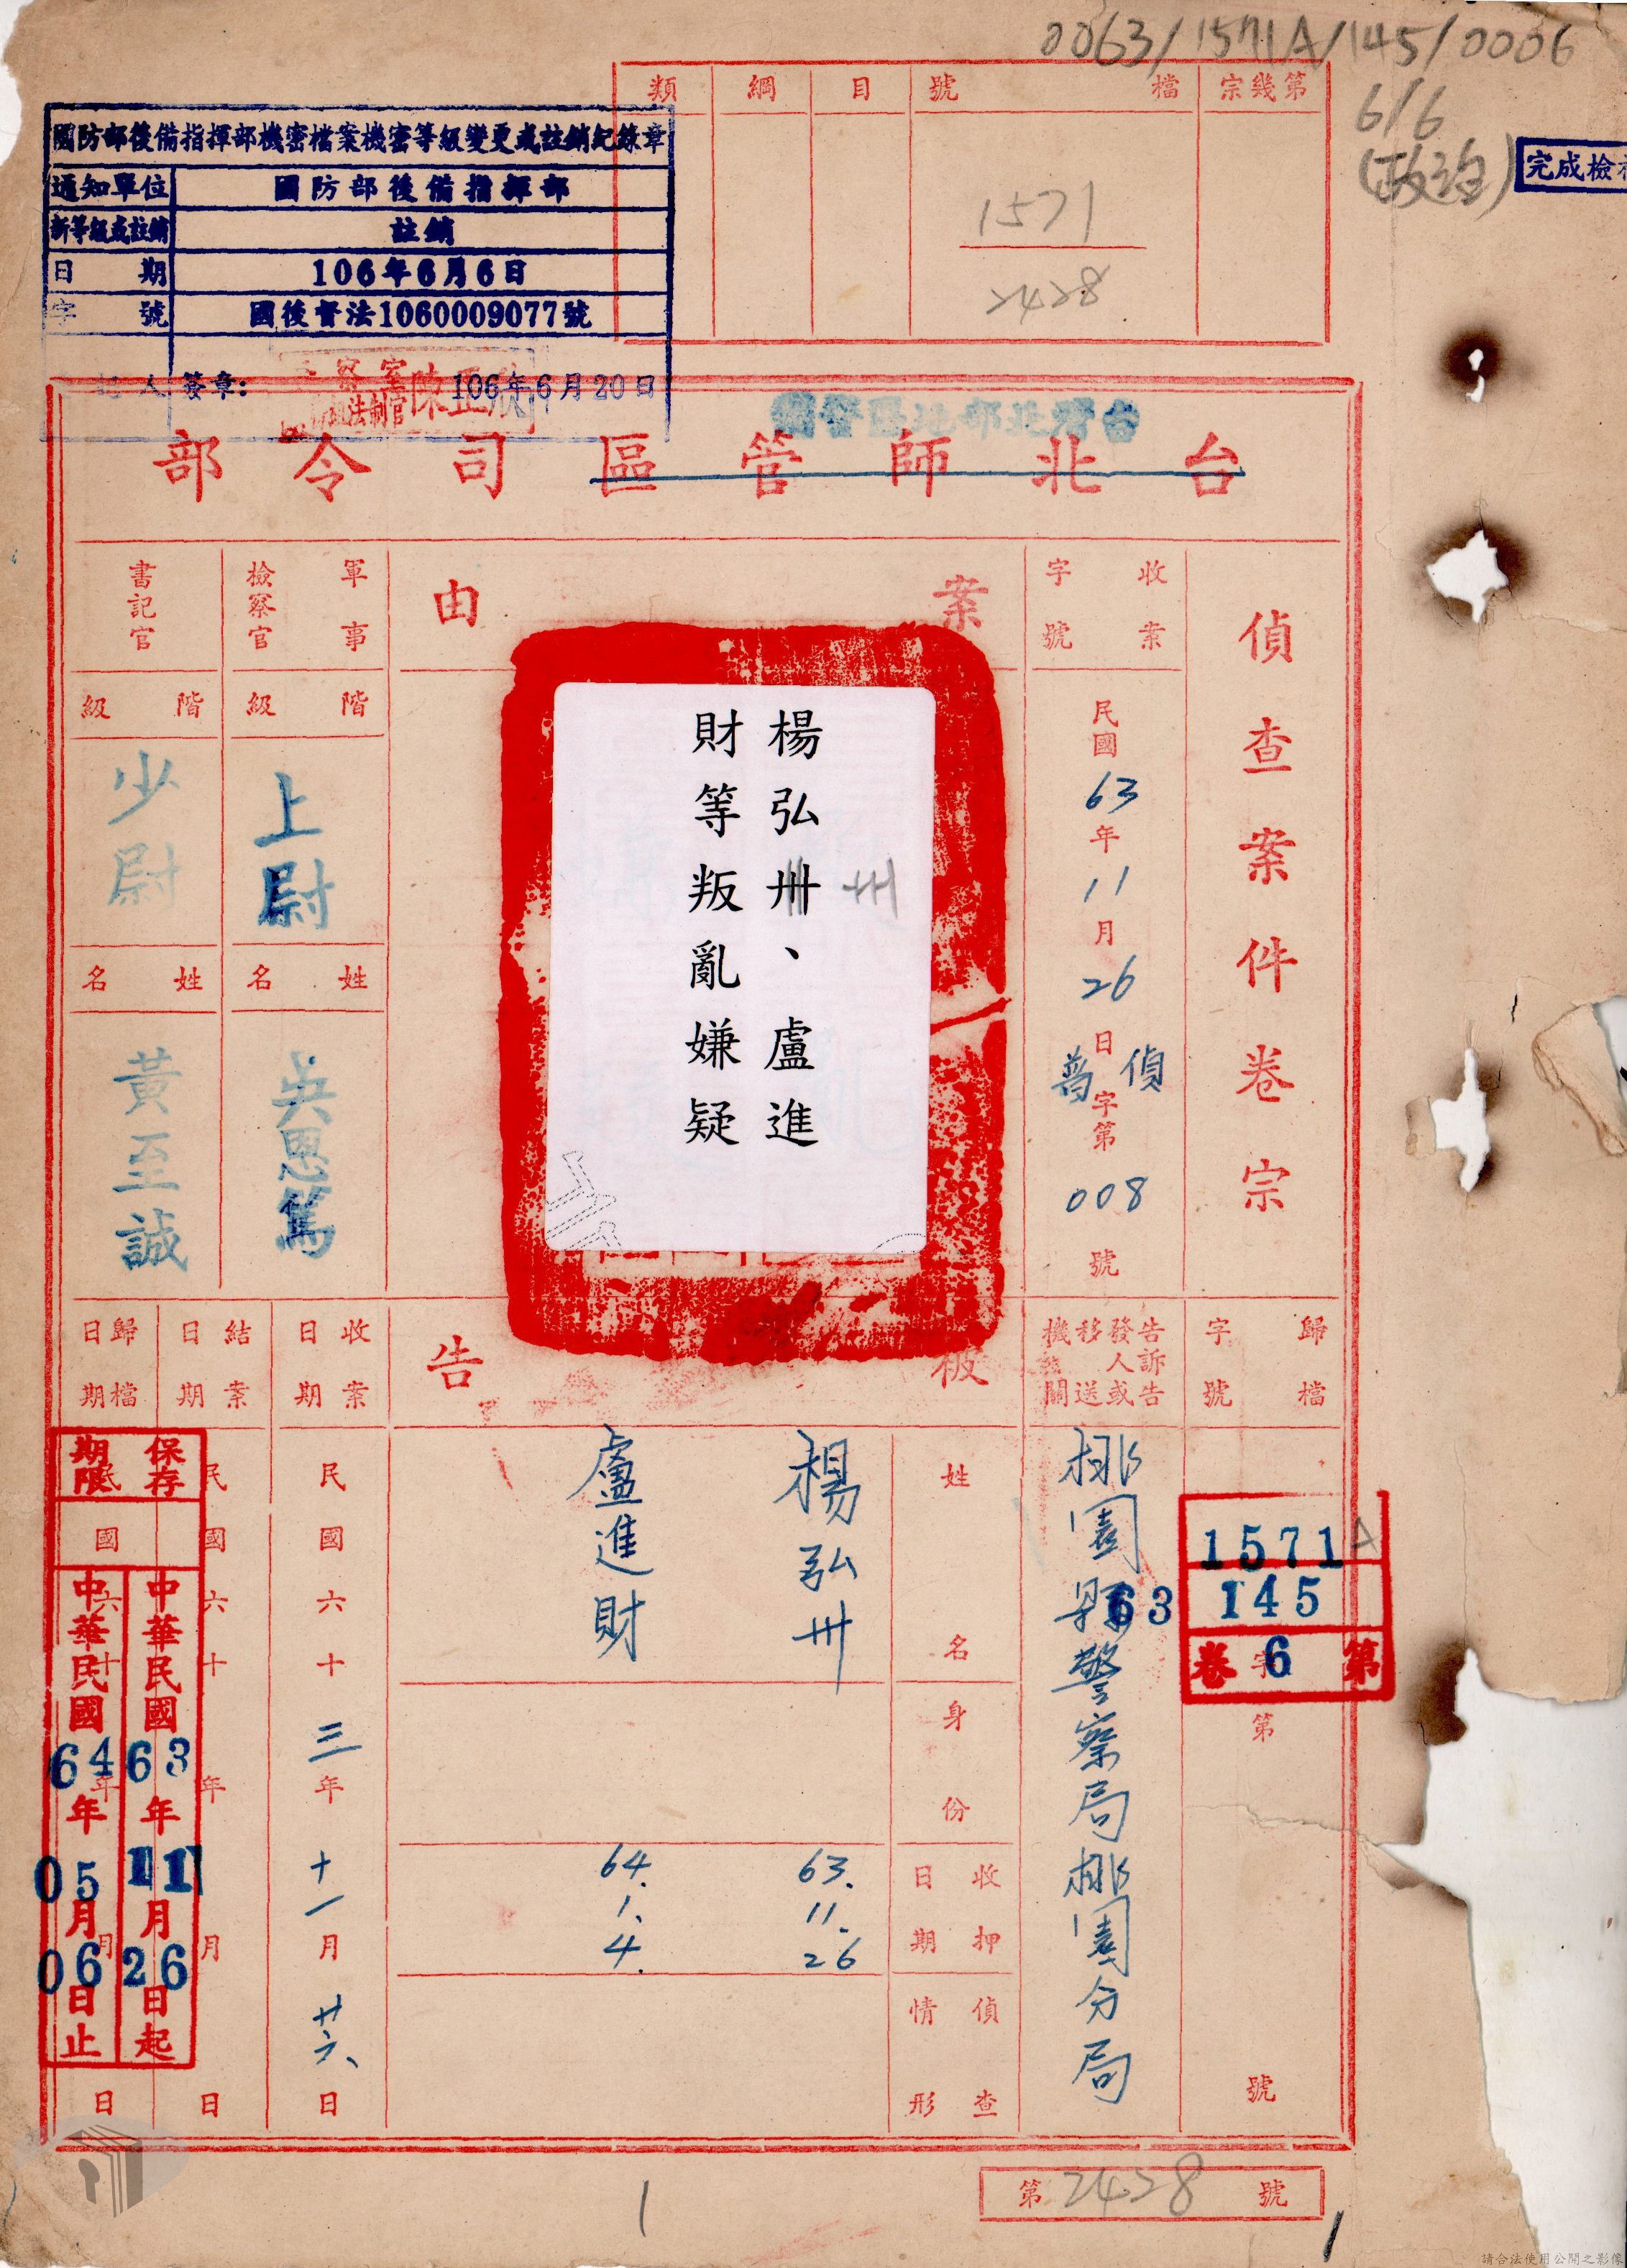 0063/1571A/145/0006
6/6
(政治)
完成檢
類 綱 目 號 檔 宗幾第
1571
2428
國防部後備指揮部機密檔案機密等級變更或註銷紀錄章
通知單位 國防部後備指揮部
新等級或註銷 註銷
日期 106年6月6日
字號 國後督法1060009077號
人簽章:
106年6月20日
察室
法制官 陳正欣
台灣北部地區警備
台北師管區司令部
偵查案件卷宗
收案字號
民國63年11月26日
偵普字第008號
案由
楊弘卅、盧進
財等叛亂嫌疑
卅
軍事檢察官
階級
上尉
姓名
吳恩篤
書記官
階級
少尉
姓名
黃至誠
歸檔字號
字第
號
1571A
145
第6卷
63
告訴告發人或移送機關
桃園縣警察局桃園分局
被告
姓名
楊弘卅
盧進財
身份
收押日期
63.11.26
64.1.4.
偵查情形
收案日期
民國六十三年十一月廿六日
結案日期
民國六十年月日
歸檔日期
民國六十年月日
保存期限
中華民國63年11月26日起
中華民國64年05月06日止
第2428號
1
1
請合法使用公開之影像